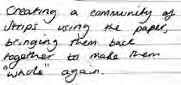 Creating a community of
strips using the paper,
bringing them back
together to make them
"whole" again.